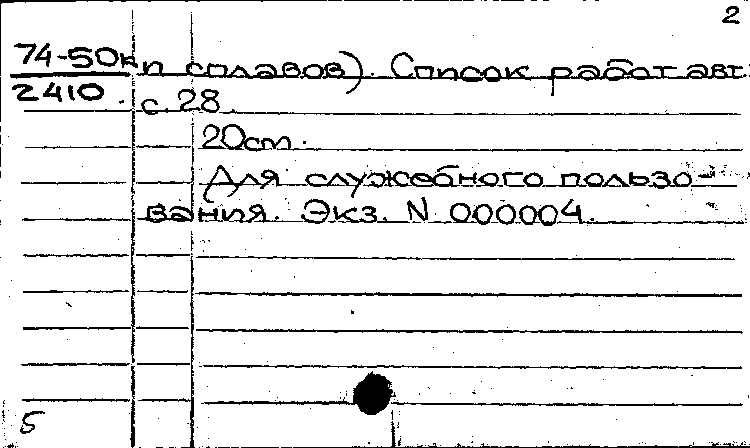 2
74-50кп сплавов). Список работ авт.
2410. с. 28.
20см.
Для служебного пользо-
вания. Экз. N 000004.
5